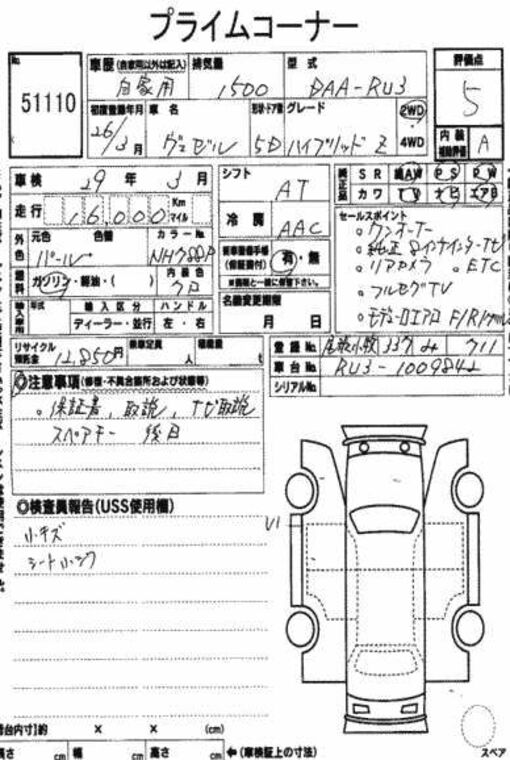 プライムコーナー
No. 51110
車歴(自家用以外は記入) 自家用
排気量 1500
型式 DAA-RU3
評価点 5
初度登録年月 26/3月
車名 ヴェゼル
形状・ドア数 5D
グレード ハイブリッド Z
2WD
4WD
内装補助評価 A
車検 29年 3月
走行 16,000 Km マイル
シフト AT
冷房 AAC
純正品 SR 純AW PS PW
カワ TV ナビ エアB
セールスポイント
。ワンオーナー
。純正8インチインターナビ
。リアカメラ 。ETC
。フルセグTV
。モデューロエアロ F/R/
外色 元色 パール 色替 カラーNo. NH788P
燃料 ガソリン・軽油・( ) 内装色 クロ
新車整備手帳(保証書付) 有・無
※車輌と一緒に保管下さい。
輸入車用 年式 輸入区分 ディーラー・並行 ハンドル 左・右
名義変更期限 月 日
リサイクル預託金 12,850円
乗車定員 人
積載量 t
登録No. 尾張小牧 337 み 711
車台No. RU3-1009842
シリアルNo.
◎注意事項(修復・不具合箇所および状態等)
。保証書、取説、ナビ取説
スペアキー 後日
◎検査員報告(USS使用欄)
小キズ
シート小シワ
U1
荷台内寸)約 × × (cm)
長さ cm 幅 cm 高さ cm ←(車検証上の寸法)
スペア